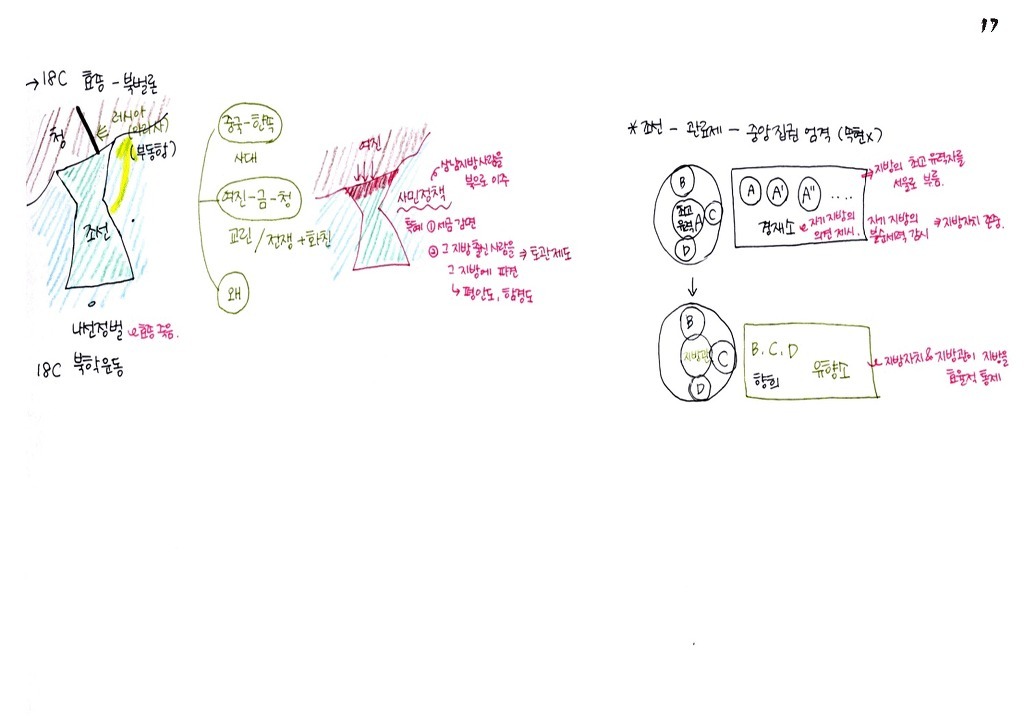 17
→18C 효종 - 북벌론
청
러시아
(부동항)
조선
내선정벌 효종 죽음.
18C 북학운동
중국-한족
사대
여진-금-청
교린 / 전쟁 + 화친
왜
여진
삼남지방사람을
북으로 이주
사민정책
특혜 ① 세금 감면
② 그 지방 출신 사람을 ⇒ 토관제도
그 지방에 파견
↳ 평안도, 함경도
* 조선 - 관료제 - 중앙집권 엄격 (속현x)
B
최고
유력 A
C
D
A A' A" ....
경재소
⇒ 지방의 최고 유력자를
서울로 부름.
자기 지방의
의견 제시.
자기 지방의
불순세력 감시
⇒ 지방자치 존중.
B
지방관
C
D
B. C. D
향회
유향소
지방자치 & 지방관이 지방을
효율적 통제